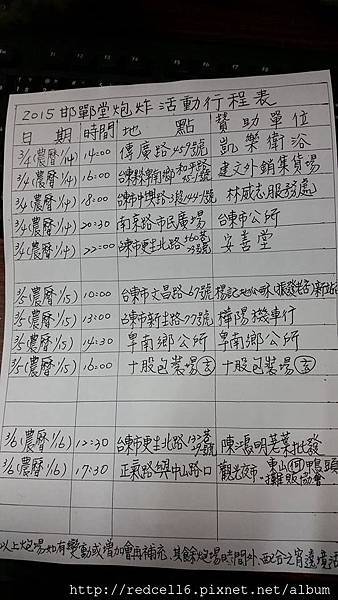 2015邯鄲堂炮炸活動行程表
日期 時間 地點 贊助單位
3/4(農曆1/14) 14:00 傳廣路459號 凱樂衛浴
3/4(農曆1/14) 16:00 台東縣卑南鄉和平路 建文外銷集貨場
3/4(農曆1/14) 18:00 台東市中興路3段444號 林威志服務處
3/4(農曆1/14) 20:30 南京路市民廣場 台東市公所
3/4(農曆1/14) 22:00 台東市更生北路 安善堂
3/5(農曆1/15) 10:00 台東市文昌路67號
3/5(農曆1/15) 13:00 台東市新生路77號 樺陽機車行
3/5(農曆1/15) 14:30 卑南鄉公所 卑南鄉公所
3/5(農曆1/15) 16:00 十股包裝場玄 十股包裝場玄
3/6(農曆1/16) 台東市更生北路 陳鴻明荖葉批發
3/6(農曆1/16) 17:30 正氣路與中山路口 觀光夜市 東山鴨頭 攤販協會
以上炮場如有變動或增加會再補充 其餘炮場時間外，配合元宵遶境活
http://redcell6.pixnet.net/album